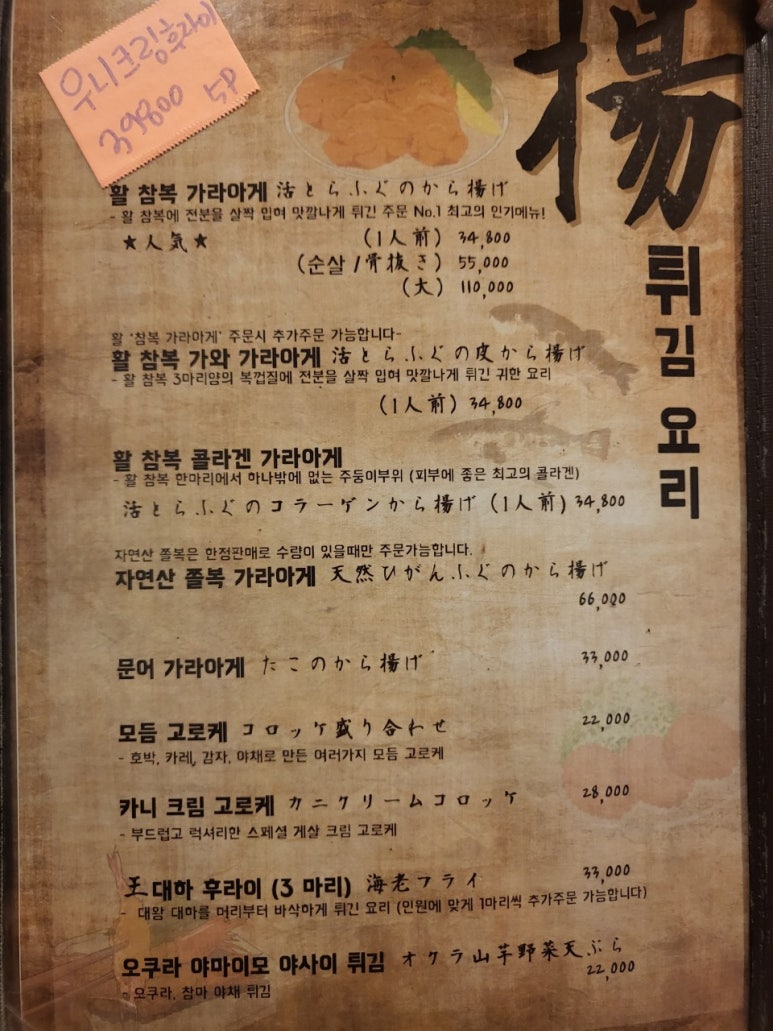 우니크림후라이
39800 5P
揚
튀김 요리
활 참복 가라아게 活とらふぐのから揚げ
- 활 참복에 전분을 살짝 입혀 맛깔나게 튀긴 주문 No.1 최고의 인기메뉴!
★人気★ (1人前) 34,800
(순살 / 骨抜き) 55,000
(大) 110,000
활 '참복 가라아게' 주문시 추가주문 가능합니다-
활 참복 가와 가라아게 活とらふぐの皮から揚げ
- 활 참복 3마리양의 복껍질에 전분을 살짝 입혀 맛깔나게 튀긴 귀한 요리
(1人前) 34,800
활 참복 콜라겐 가라아게
- 활 참복 한마리에서 하나밖에 없는 주둥이부위 (피부에 좋은 최고의 콜라겐)
活とらふぐのコラーゲンから揚げ (1人前) 34,800
자연산 쫄복은 한정판매로 수량이 있을때만 주문가능합니다.
자연산 쫄복 가라아게 天然ひがんふぐのから揚げ
66,000
문어 가라아게 たこのから揚げ 33,000
모듬 고로케 コロッケ盛り合わせ 22,000
- 호박, 카레, 감자, 야채로 만든 여러가지 모듬 고로케
카니 크림 고로케 カニクリームコロッケ 28,000
- 부드럽고 럭셔리한 스페셜 게살 크림 고로케
王대하 후라이 (3 마리) 海老フライ 33,000
- 대왕 대하를 머리부터 바삭하게 튀긴 요리 (인원에 맞게 1마리씩 추가주문 가능합니다)
오쿠라 야마이모 야사이 튀김 オクラ山芋野菜天ぷら
22,000
- 오쿠라, 참마 야채 튀김